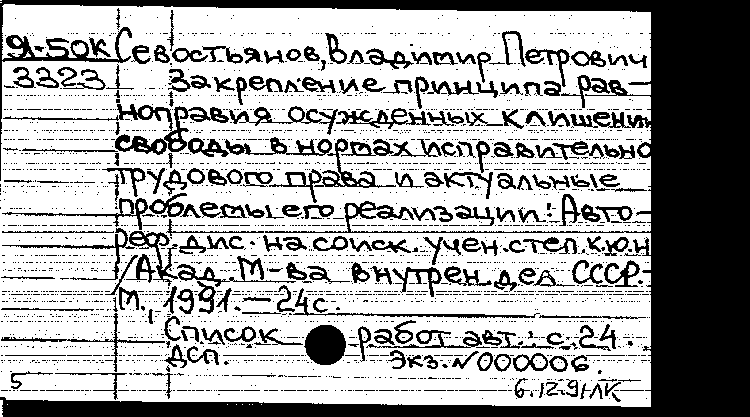 91-50К Севостьянов, Владимир Петрович
3323 Закрепление принципа рав-
ноправия осужденных к лишению
свободы в нормах исправительно
трудового права и актуальные
проблемы его реализации: Авто-
реф. дис. на соиск. учен. степ. к.ю.н
/Акад. М-ва внутрен. дел СССР.-
М., 1991. — 24с.
Список работ авт.: с. 24.
ДСП. Экз. №000006.
5 6.12.91ЛК